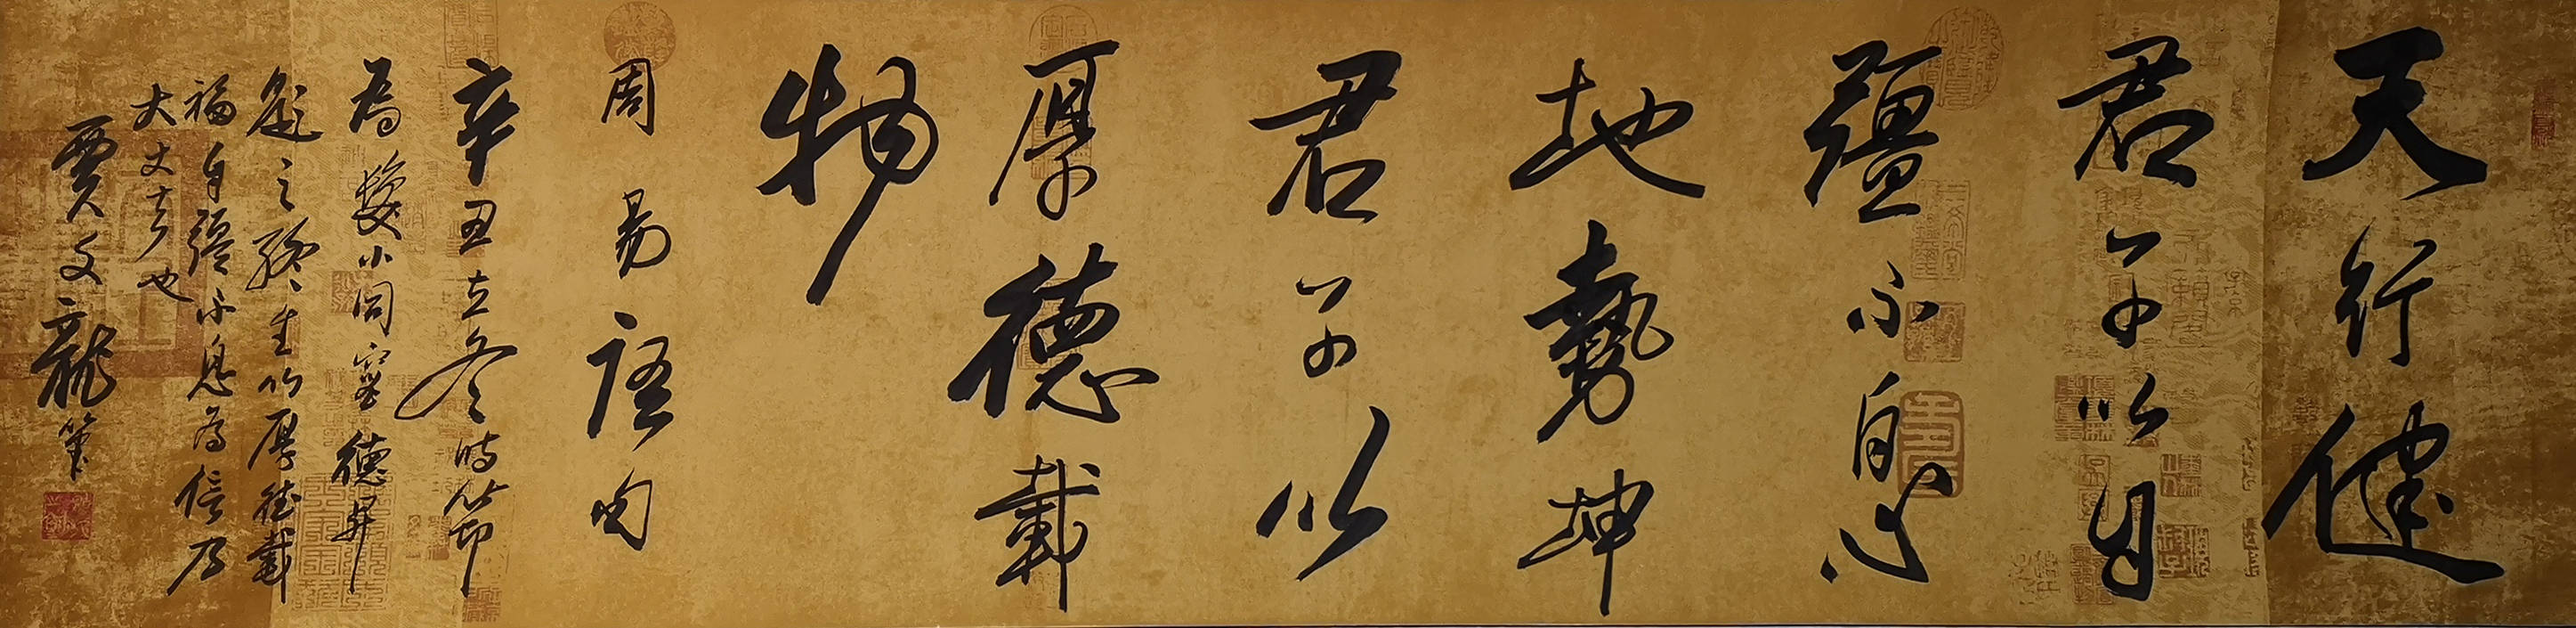 天行健
君子以自
彊不息
地勢坤
君子以
厚德載
物
周易語句
辛丑立冬時節
為 小同窗德昇
題之 生以厚德載
福自彊不息為信乃
大丈夫也
賈文龍筆